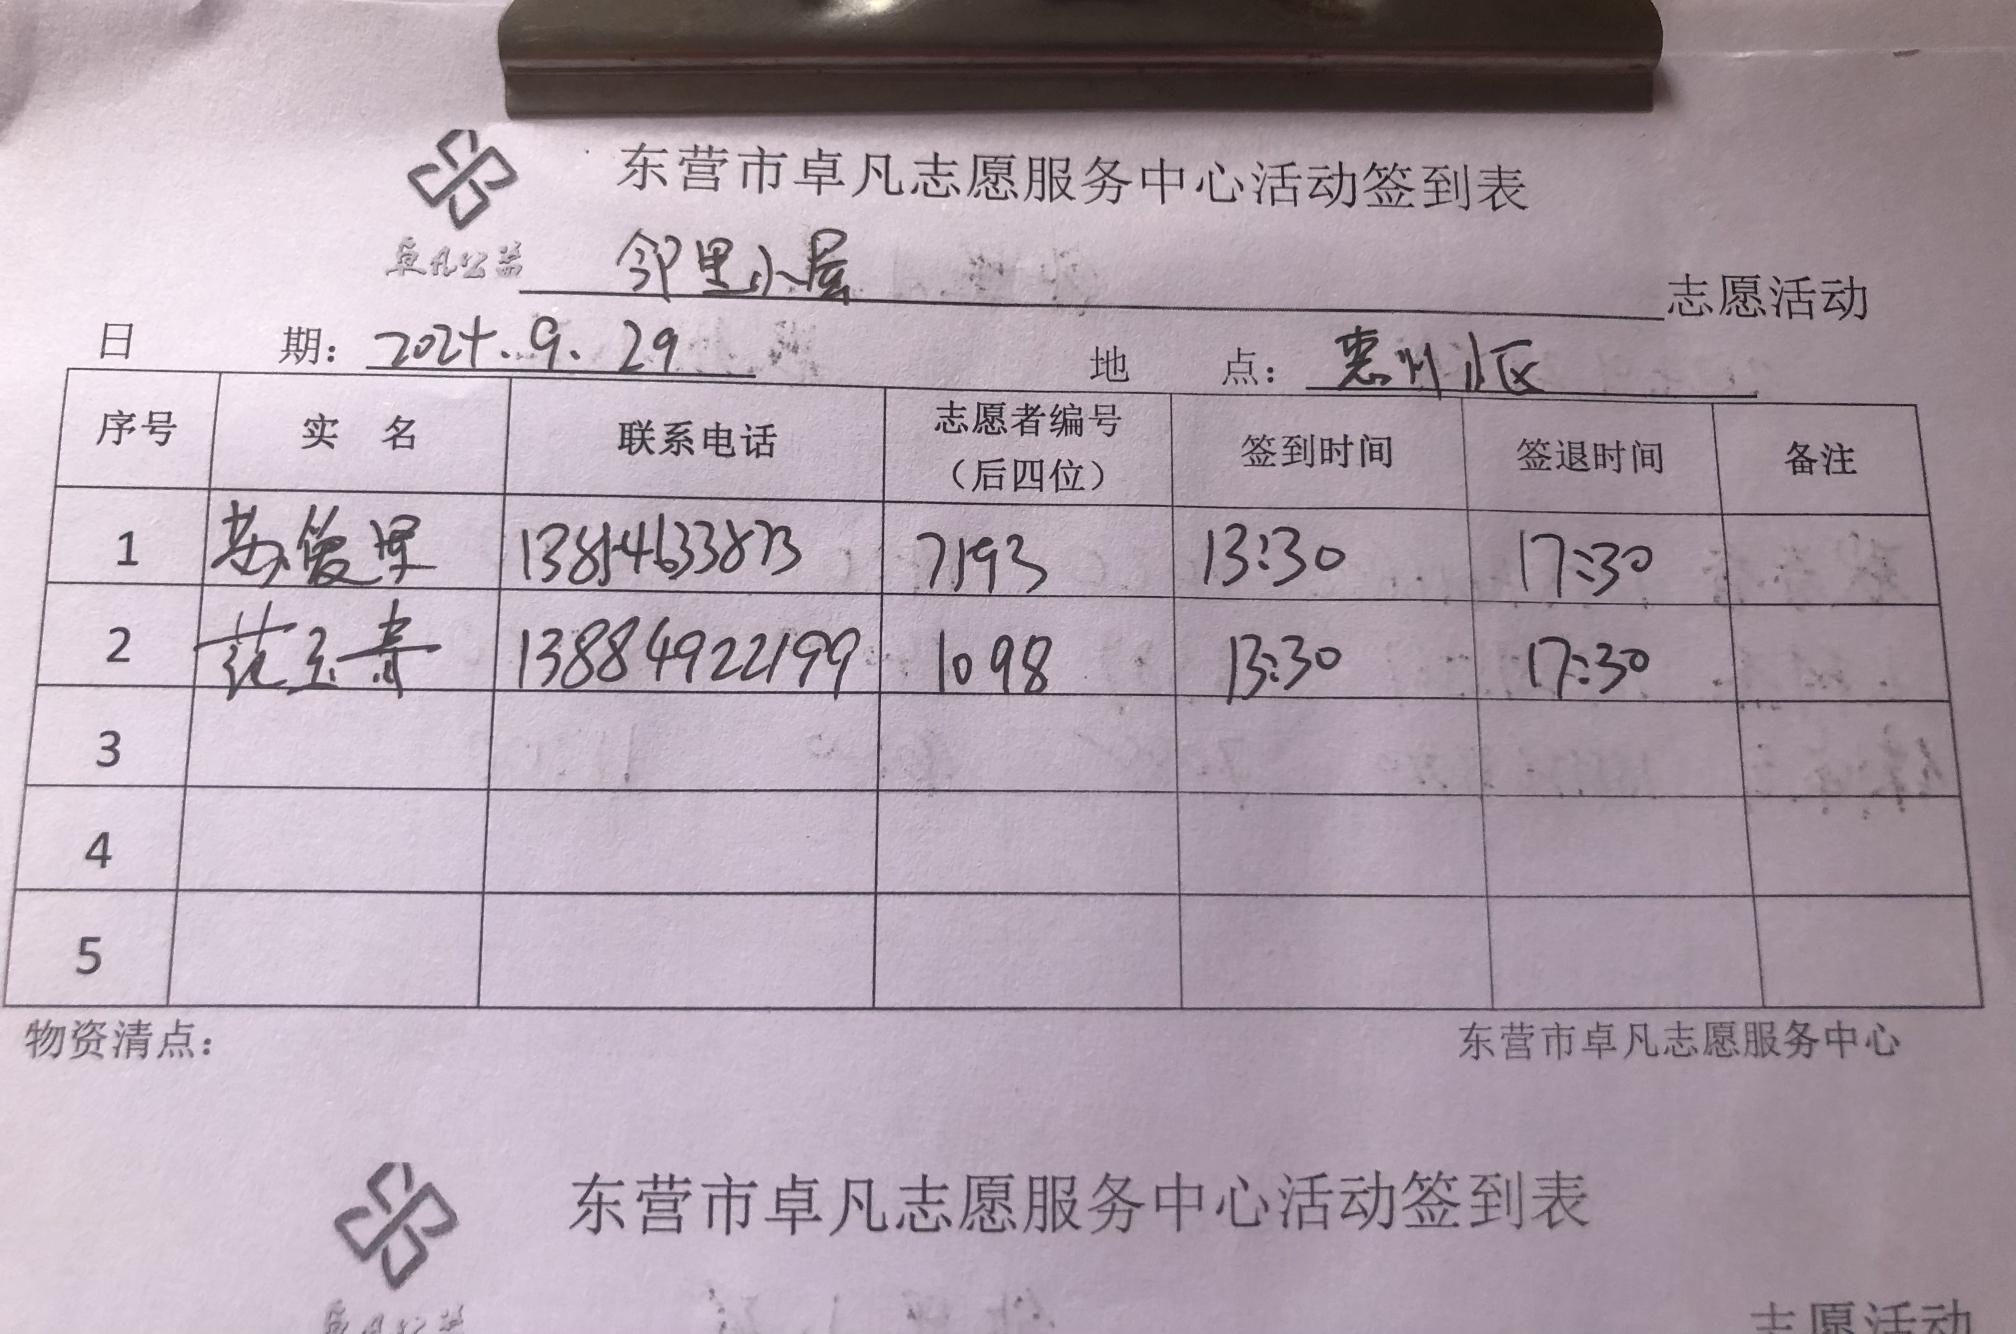 东营市卓凡志愿服务中心活动签到表
卓凡公益 邻里小屋 志愿活动
日 期: 2024.9.29 地 点: 惠州小区
序号 实 名 联系电话 志愿者编号(后四位) 签到时间 签退时间 备注
1 苏俊 13854633873 7193 13:30 17:30
2 范玉春 13884922199 1098 13:30 17:30
3
4
5
物资清点: 东营市卓凡志愿服务中心
东营市卓凡志愿服务中心活动签到表
卓凡公益 志愿活动